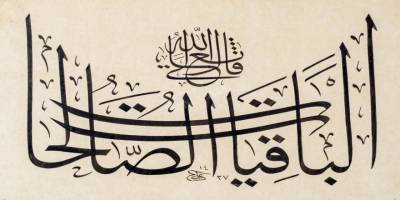 قال الله تعالى
الباقيات الصالحات
١٤٢٧